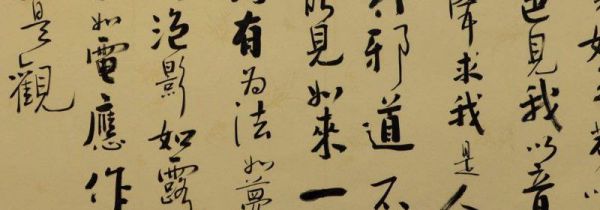 色見我以音
聲求我是人
行邪道不
能見如來一
有為法如夢
泡影如露
如電應作
是觀